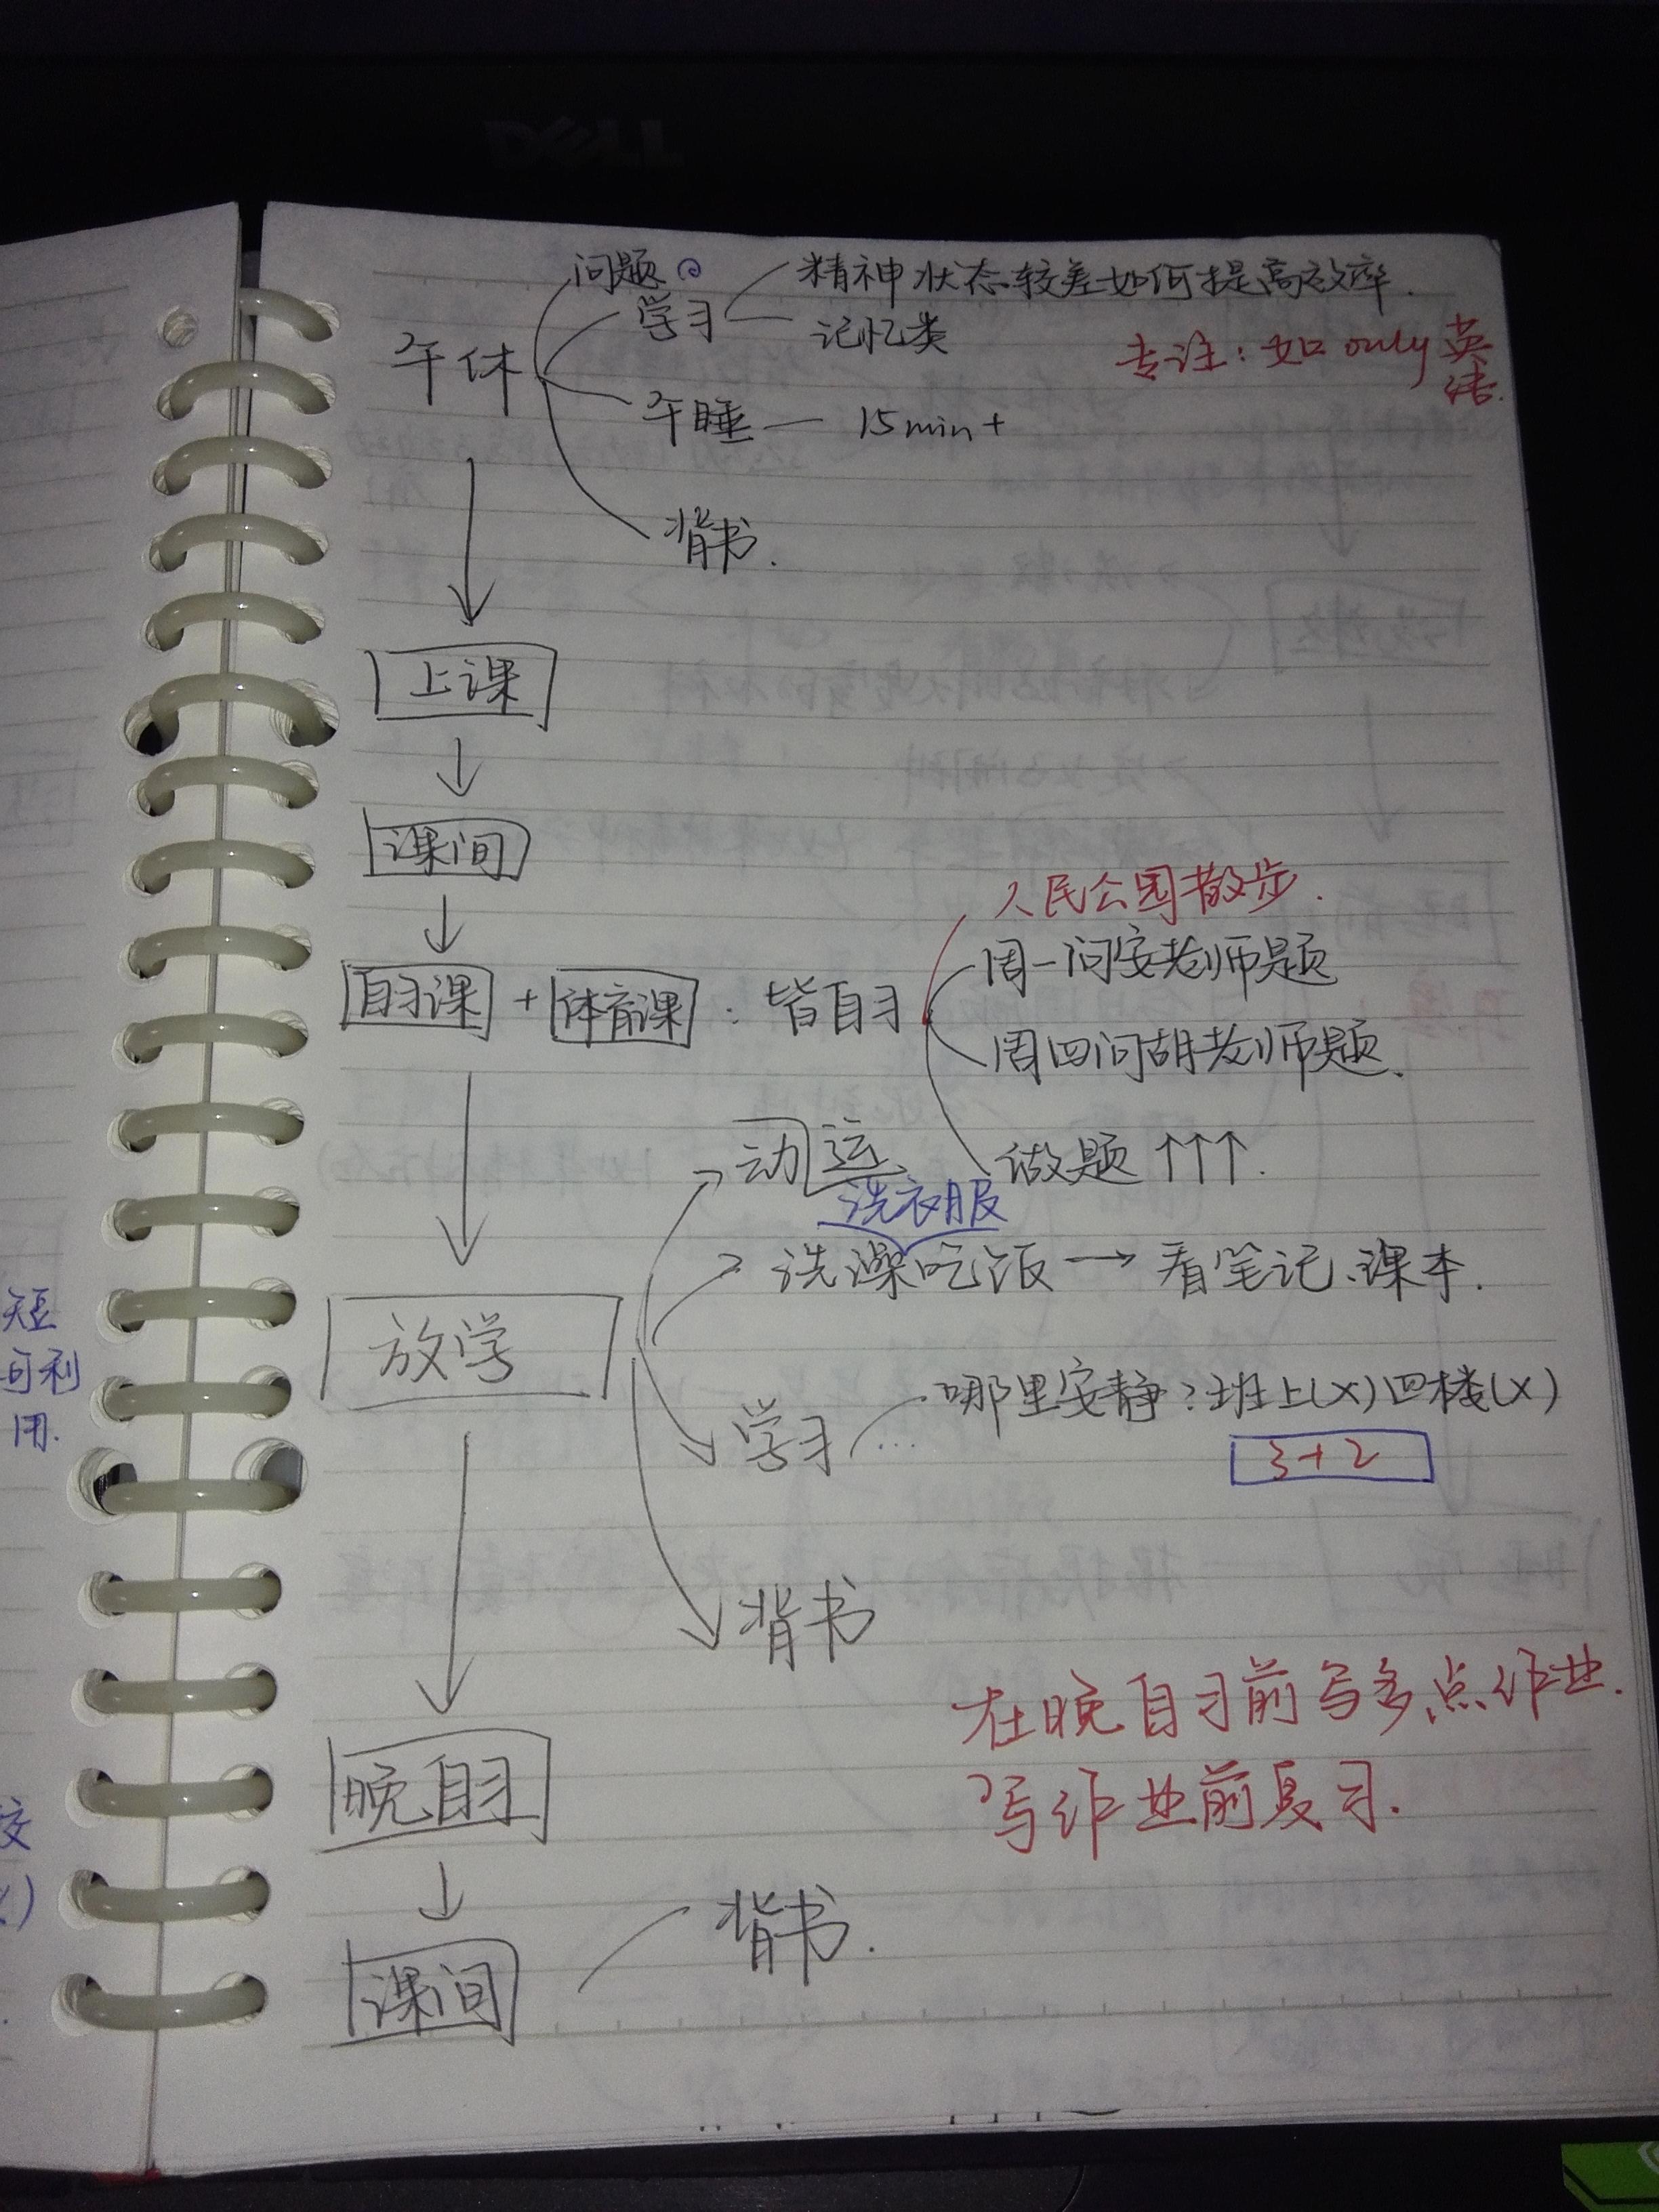 DELL
问题
学习
精神状态较差如何提高效率.
记忆类
专注:如only英
语.
午休
午睡— 15min+
背书.
上课
课间
人民公园散步.
周一问安老师题
自习课+体育课:皆自习
周四问胡老师题.
做题↑↑↑.
动运
洗衣服
洗澡吃饭→看笔记、课本.
放学
哪里安静?班上(×)四楼(×)
学习...
3+2
背书
在晚自习前写多点作业.
写作业前复习.
晚自习
背书.
课间
短
利
用.